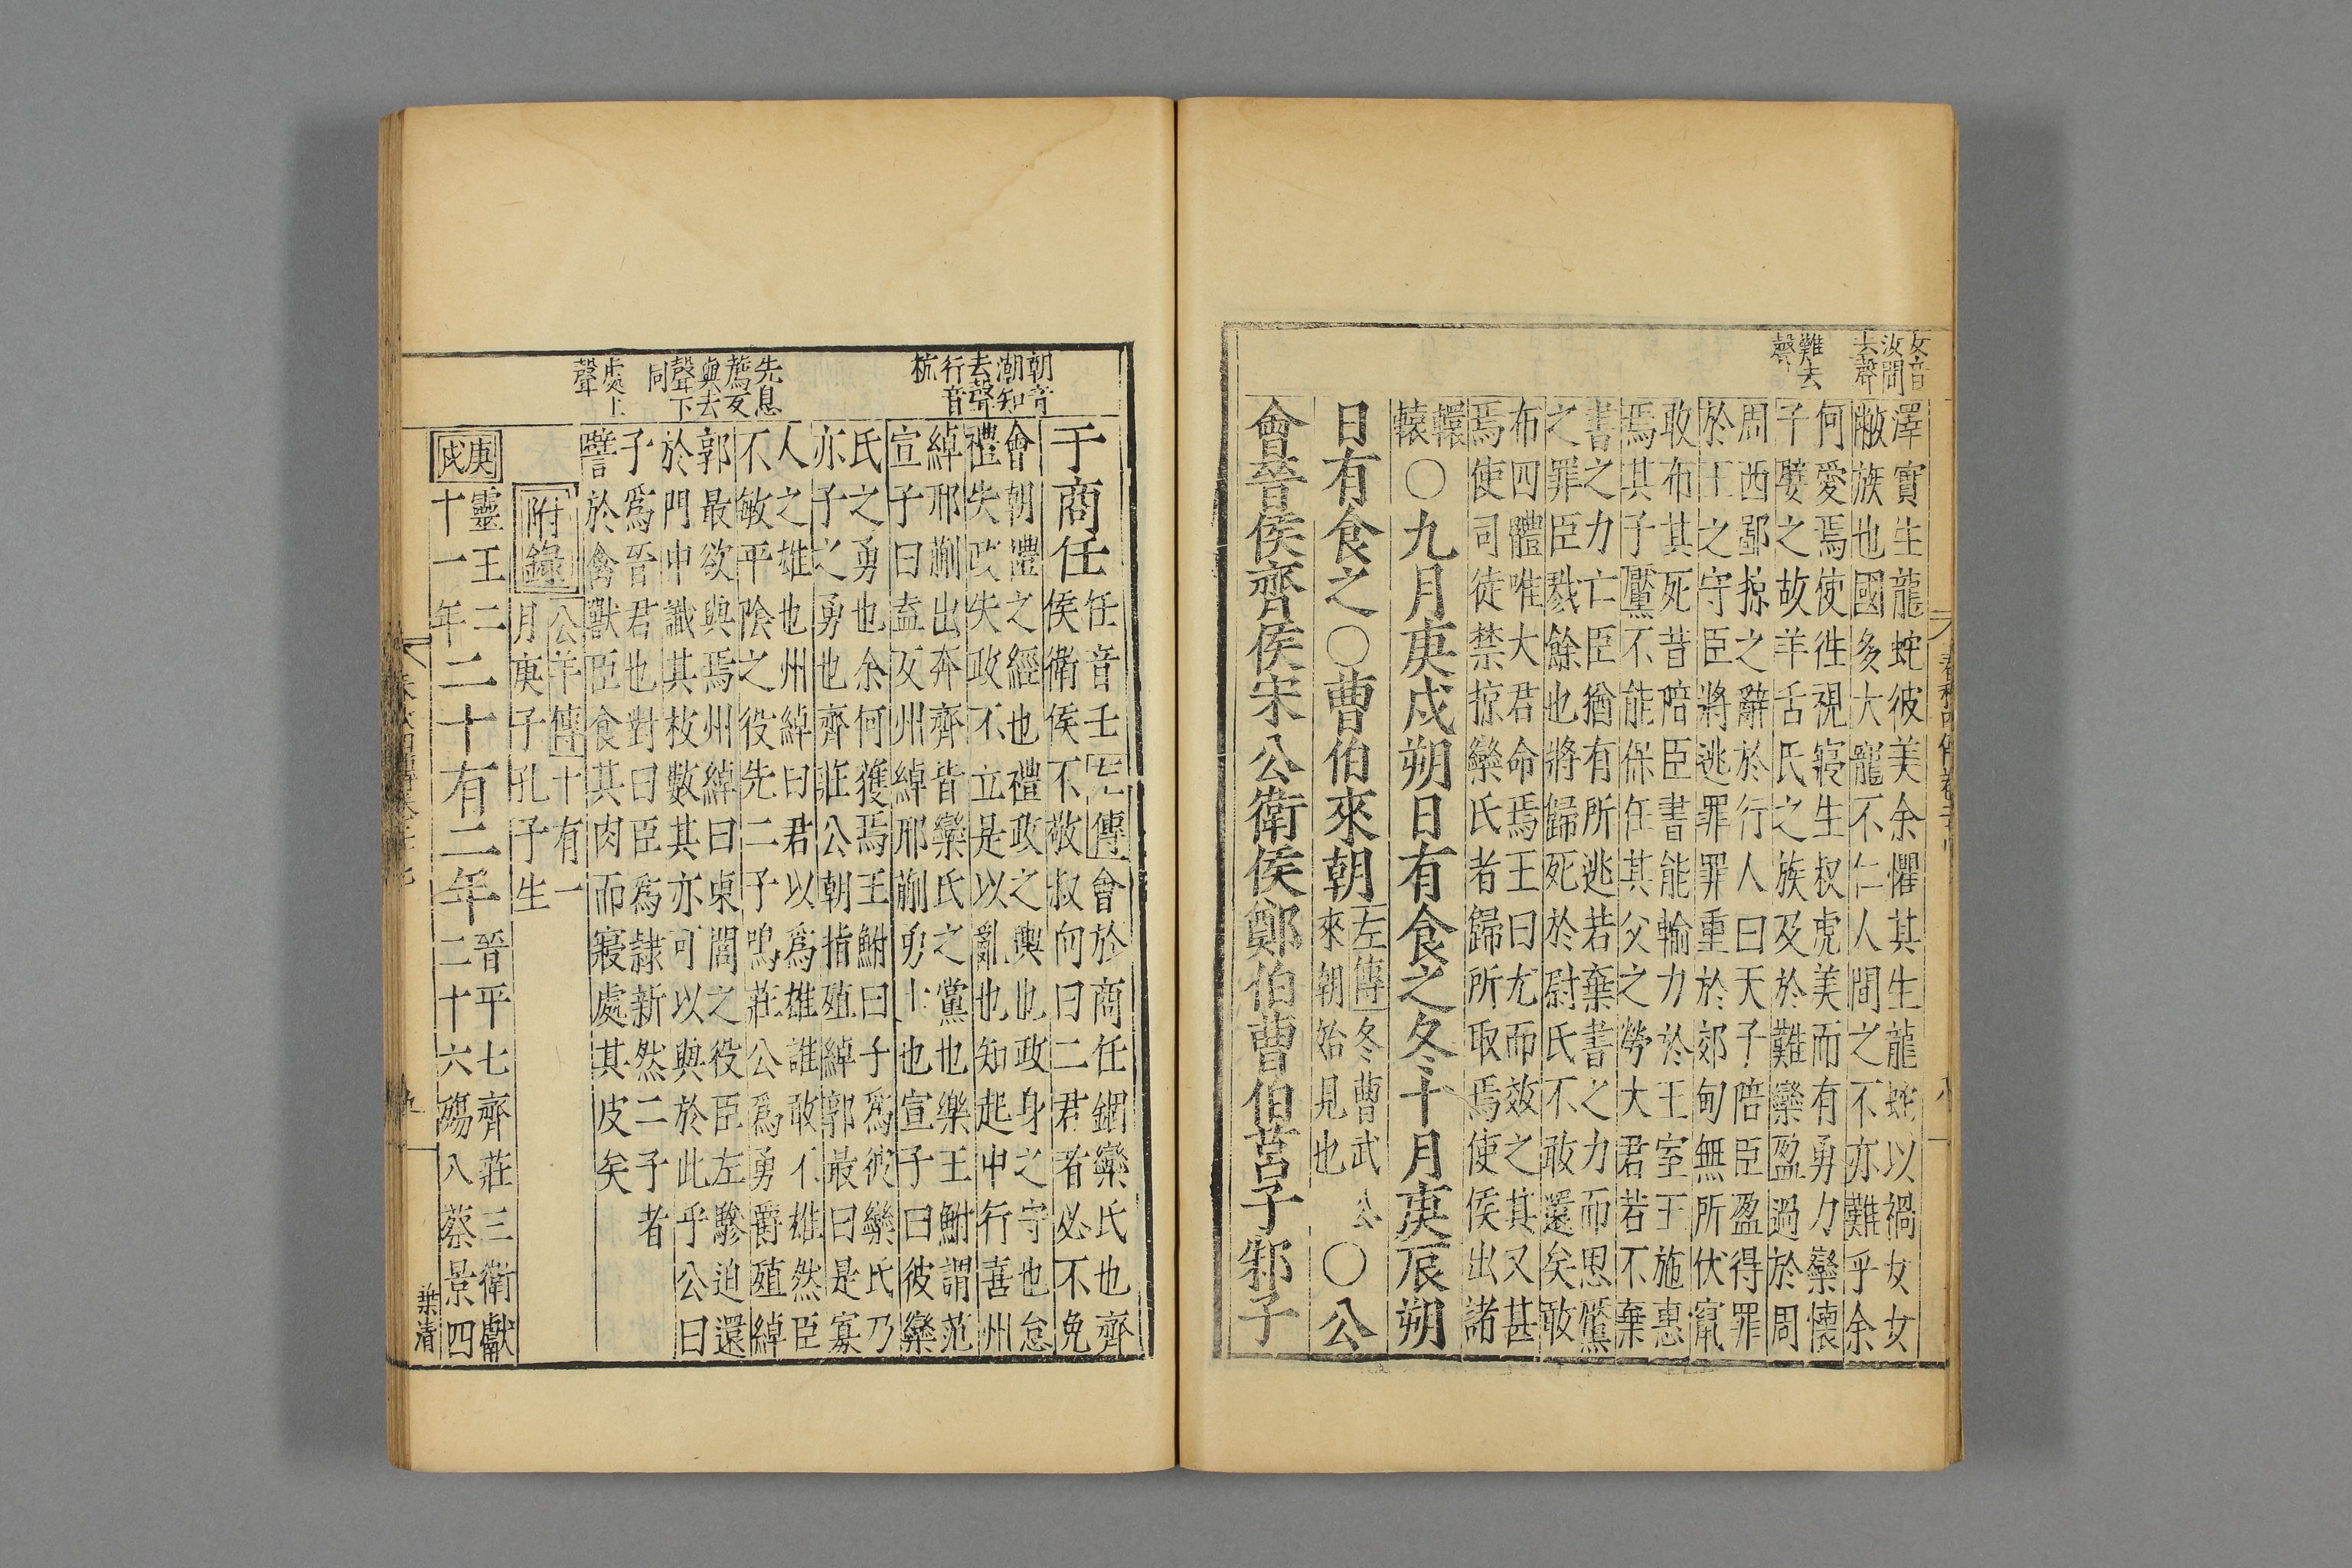 女音
汝間
去聲
難去
聲
澤實生龍蛇彼美余懼其生龍蛇以禍女女
敝族也國多大寵不仁人間之不亦難乎余
何愛焉使往視寢生叔虎美而有勇力欒懷
子嬖之故羊舌氏之族及於難欒盈過於周
周西鄙掠之辭於行人曰天子陪臣盈得罪
於王之守臣將逃罪罪重於郊甸無所伏竄
敢布其死昔陪臣書能輸力於王室王施惠
焉其子黶不能保任其父之勞大君若不棄
書之力亡臣猶有所逃若棄書之力而思黶
之罪臣戮餘也將歸死於尉氏不敢還矣敢
布四體唯大君命焉王曰尤而效之其又甚
焉使司徒禁掠欒氏者歸所取焉使侯出諸
轘
轅
○九月庚戌朔日有食之冬十月庚辰朔
日有食之○曹伯來朝
左傳冬曹武公
來朝始見也
○公
會晉侯齊侯宋公衛侯鄭伯曹伯莒子邾子
朝音
潮知
去聲
行音
杭
先息
薦反
與去
聲下
同
處上
聲
于商任
任音壬左傳會於商任錮欒氏也齊
侯衛侯不敬叔向曰二君者必不免
會朝禮之經也禮政之輿也政身之守也怠
禮失政失政不立是以亂也知起中行喜州
綽邢蒯出奔齊皆欒氏之黨也樂王鮒謂范
宣子曰盍反州綽邢蒯勇士也宣子曰彼欒
氏之勇也余何獲焉王鮒曰子爲彼欒氏乃
亦子之勇也齊莊公朝指殖綽郭最曰是寡
人之雄也州綽曰君以爲雄誰敢不雄然臣
不敏平陰之役先二子鳴莊公爲勇爵殖綽
郭最欲與焉州綽曰東閭之役臣左驂迫還
於門中識其枚數其亦可以與於此乎公曰
子爲晉君也對曰臣爲隸新然二子者
譬於禽獸臣食其肉而寢處其皮矣
附錄
公羊傳十有一
月庚子孔子生
庚
戌
靈王二
十一年
二十有二年
晉平七齊莊三衛獻
二十六殤八蔡景四
葉清